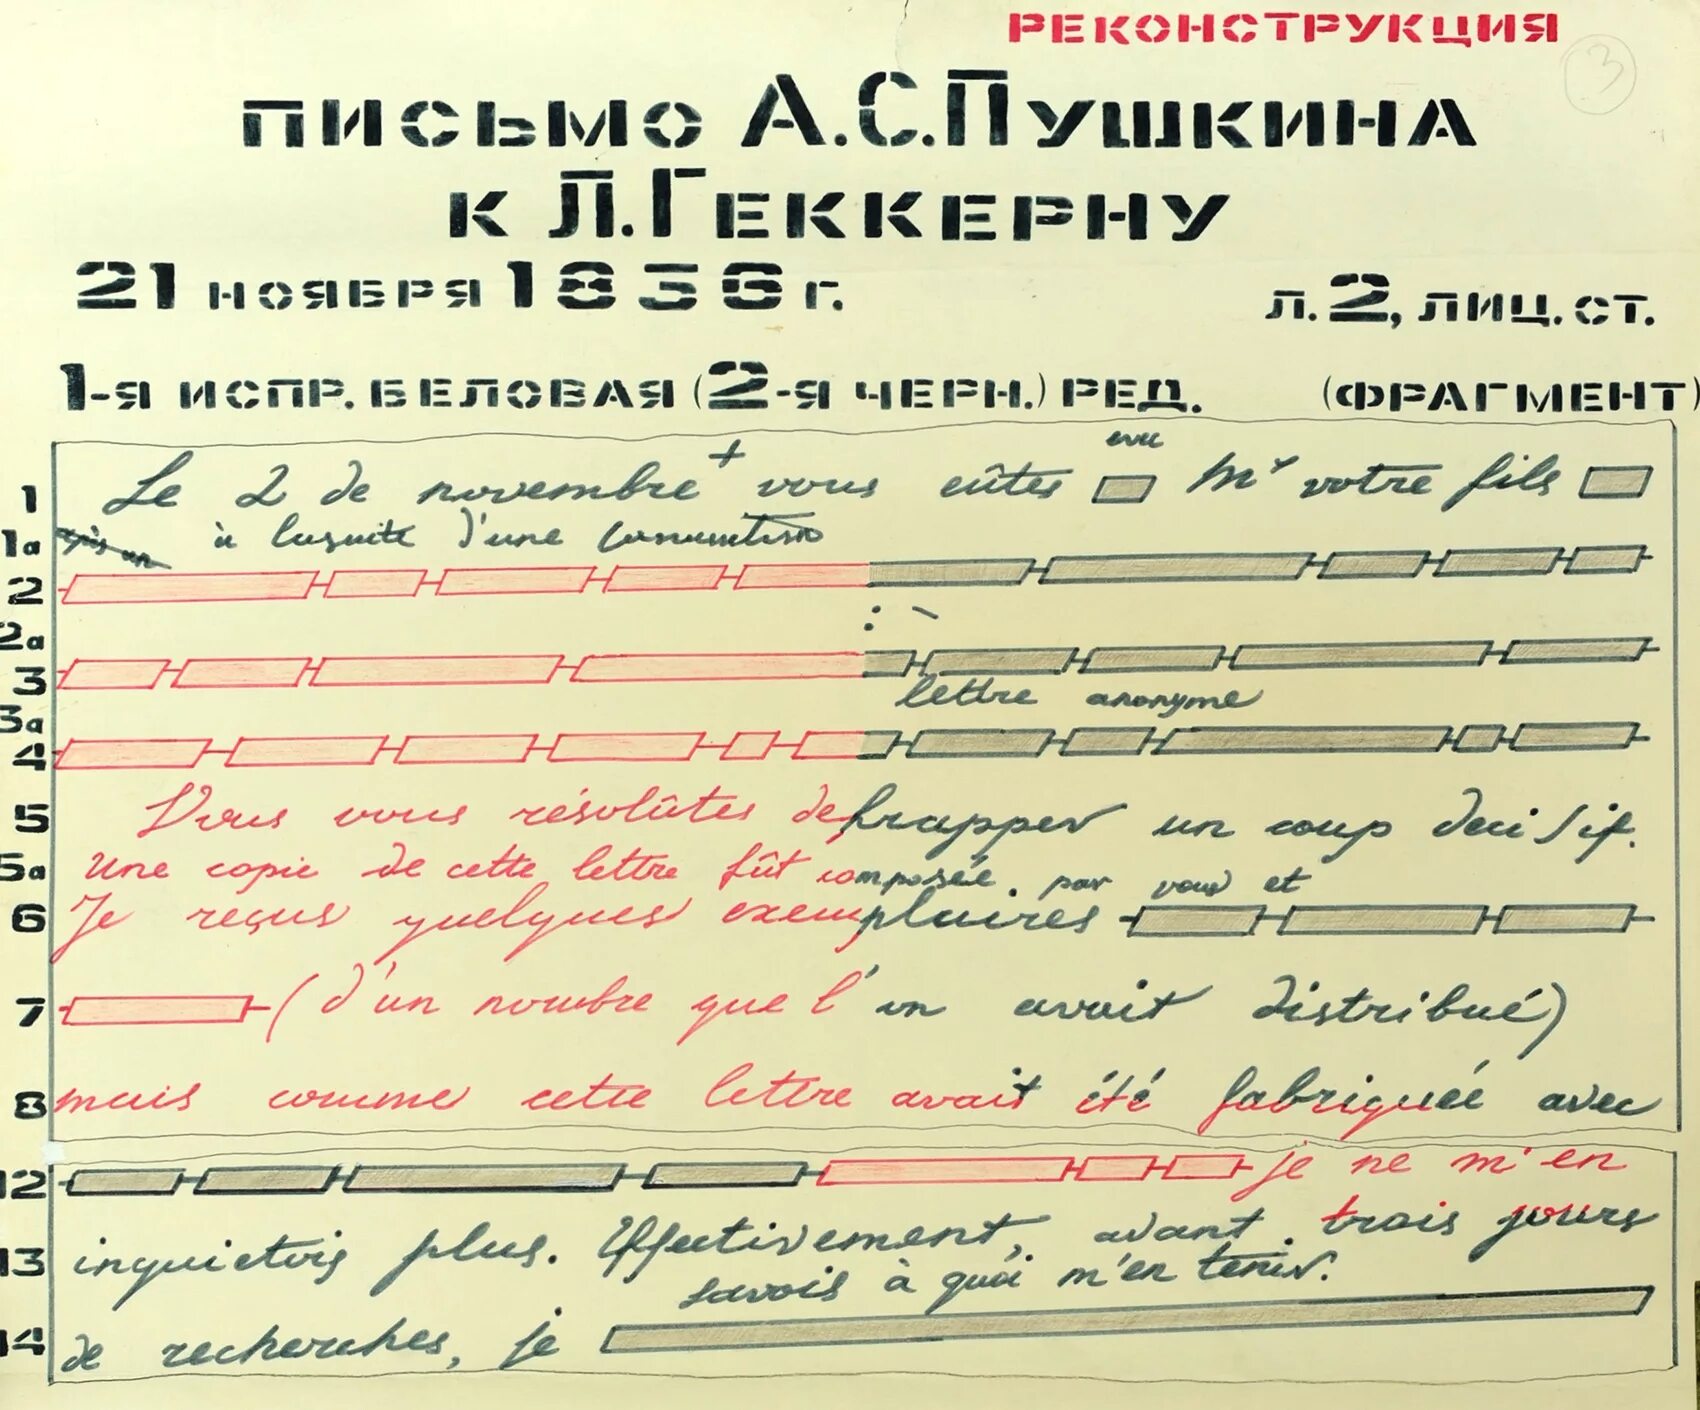 РЕКОНСТРУКЦИЯ
3
ПИСЬМО А.С.ПУШКИНА
К Л.ГЕККЕРНУ
21 НОЯБРЯ 1836 Г.
Л.2, ЛИЦ.СТ.
1-Я ИСПР.БЕЛОВАЯ (2-Я ЧЕРН.) РЕД. (ФРАГМЕНТ)
avec
1 Le 2 de novembre + vous eûtes Mr votre fils
1а après un à la suite d'une
2
2а
3
3а lettre anonyme
4
5 Vous vous résolûtes de frapper un coup decisif.
5а Une copie de cette lettre fût composée. par vous et
6 Je reçus quelques exemplaires
7 (d'un nombre que l'on avait distribué)
8 mais comme cette lettre avait été fabriquée avec
12 je ne m'en
13 inquietois plus. Effectivement, avant. trois jours
savois à quoi m'en tenir.
14 de recherches, je